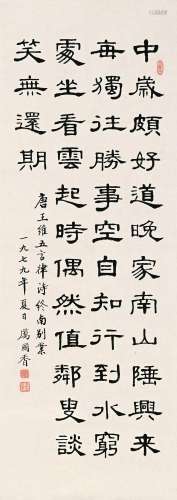 中歲頗好道晚家南山陲興来
每獨往勝事空自知行到水窮
處坐看雲起時偶然值鄰叟談
笑無還期
唐王維五言律詩終南别業
一九七九年夏日厲國香